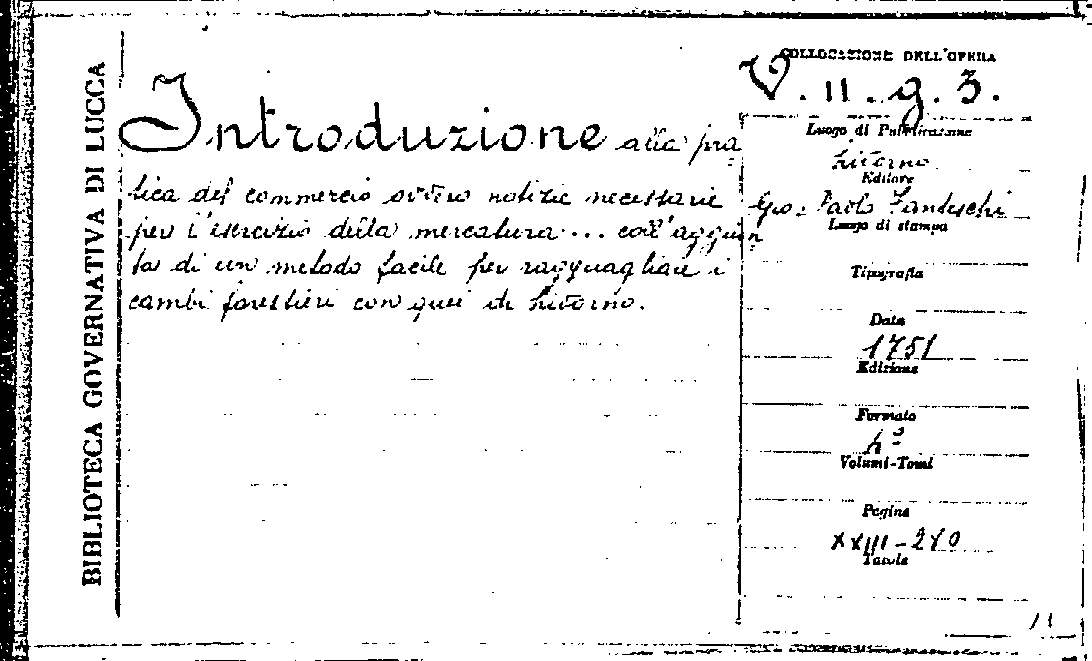 BIBLIOTECA GOVERNATIVA DI LUCCA
Introduzione alla pra
tica del commercio ovvero notizie necessarie
per l'esercizio della mercatura... coll'aggiun
ta di un metodo facile per ragguagliare i
cambi forestieri con quei di Livorno.
COLLOCAZIONE DELL'OPERA
V. 11. g. 3.
Luogo di Pubblicazione
Livorno
Editore
Gio. Paolo Fantechi
Luogo di stampa
Tipografia
Data
1751
Edizione
Formato
4º
Volumi-Tomi
Pagine
XXIII-
Tavole